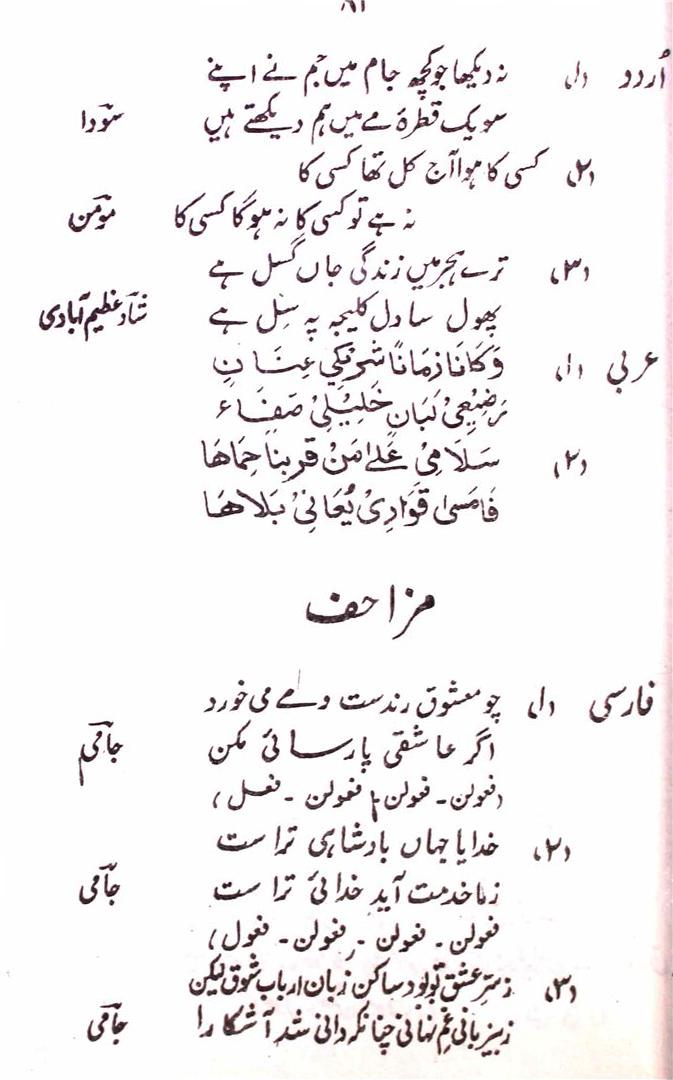 ۸۱
اُردو (۱) نہ دیکھا جو کچھ جام میں جم نے اپنے
سو یک قطرۂ مے میں ہم دیکھتے ہیں سودا
(۲) کسی کا ہوا آج کل تھا کسی کا
نہ ہے تو کسی کا نہ ہوگا کسی کا مومن
(۳) ترے ہجر میں زندگی جاں گسل ہے
پھول سا دل کلیجہ پہ سِل ہے شاد عظیم آبادی
عربی (۱) وَكَانَا زَمَانًا شَرِيْكَي عِنَانٍ
رَضِيْعَيْ لَبَانٍ خَلِيْلَيْ صَفَاء
(۲) سَلَامِيْ عَلٰى مَنْ قَرِبْنَا حِمَاهَا
فَامَسىٰ قَوَادِىْ يُعَانِىْ بَلَاهَا
مزاحف
فارسی (۱) چو معشوق رندست و مے می خورد
اگر عاشقی پارسائی مکن جامی
(فعولن۔ فعولن۔ فعولن ۔ فعل)
(۲) خدایا جہاں بادشاہی ترا ست
زما خدمت آید خدائی ترا ست جامی
فعولن ۔ فعولن ۔ فعولن ۔ فعول)
(۳) ز سّرِ عشق تو بود ساکن زبان ارباب شوق لیکن
زبیزبانی غم نہانی چنانکہ دانی شد آشکارا جامی